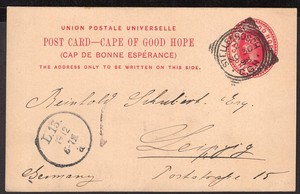 UNION POSTALE UNIVERSELLE
POST CARD—CAPE OF GOOD HOPE
(CAP DE BONNE ESPÉRANCE)
THE ADDRESS ONLY TO BE WRITTEN ON THIS SIDE.
Reinhold Schubert. Esq.
L.13.
a
Leipzig
Germany
Poststrasse 15